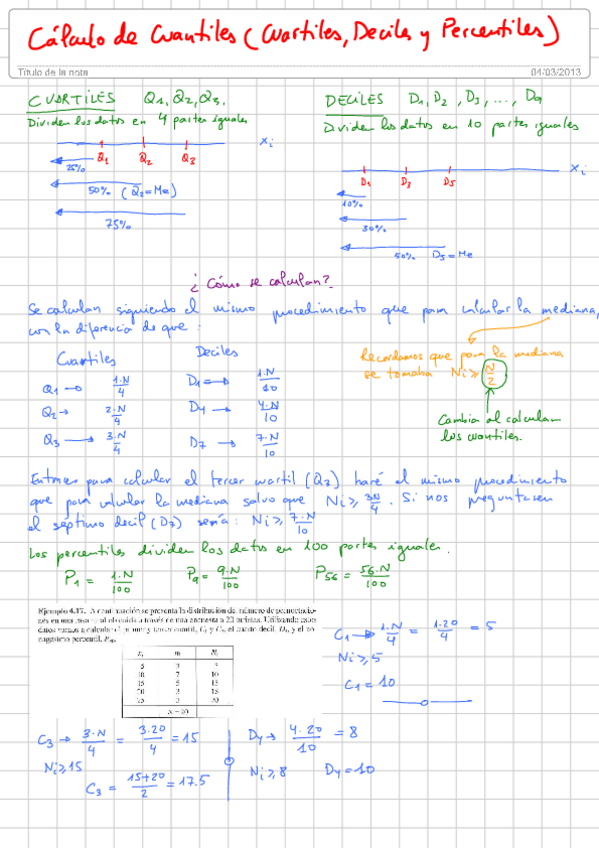 Cálculo de Cuantiles (Cuartiles, Deciles y Percentiles)
Título de la nota
04/03/2013
CUARTILES Q1, Q2, Q3.
Dividen los datos en 4 partes iguales
Q1 Q2 Q3 xi
25%
50% (Q2=Me)
75%
DECILES D1, D2, D3, ..., D9
Dividen los datos en 10 partes iguales
D1 D3 D5 xi
10%
30%
50% D5=Me
¿Cómo se calculan?
Se calculan siguiendo el mismo procedimiento que para calcular la mediana,
con la diferencia de que:
Cuartiles
Q1 → 1·N/4
Q2 → 2·N/4
Q3 → 3·N/4
Deciles
D1 → 1·N/10
D4 → 4·N/10
D7 → 7·N/10
Recordamos que para la mediana
se tomaba Ni ≥ N/2
Cambia al calcular
los cuantiles.
Entonces para calcular el tercer cuartil (Q3) haré el mismo procedimiento
que para calcular la mediana salvo que Ni ≥ 3N/4. Si nos preguntasen
el séptimo decil (D7) sería: Ni ≥ 7·N/10
Los percentiles dividen los datos en 100 partes iguales.
P1 = 1·N/100 P9 = 9·N/100 P56 = 56·N/100
Ejemplo 4.17. A continuación se presenta la distribución del número de pernoctacio-
xi ni Ni
5 3 3
10 7 10
15 5 15
20 3 18
25 2 20
N=20
C1 → 1·N/4 = 1·20/4 = 5
Ni ≥ 5
C1 = 10
C3 → 3·N/4 = 3·20/4 = 15
Ni ≥ 15
C3 = 15+20/2 = 17.5
D4 → 4·20/10 = 8
Ni ≥ 8 D4 = 10